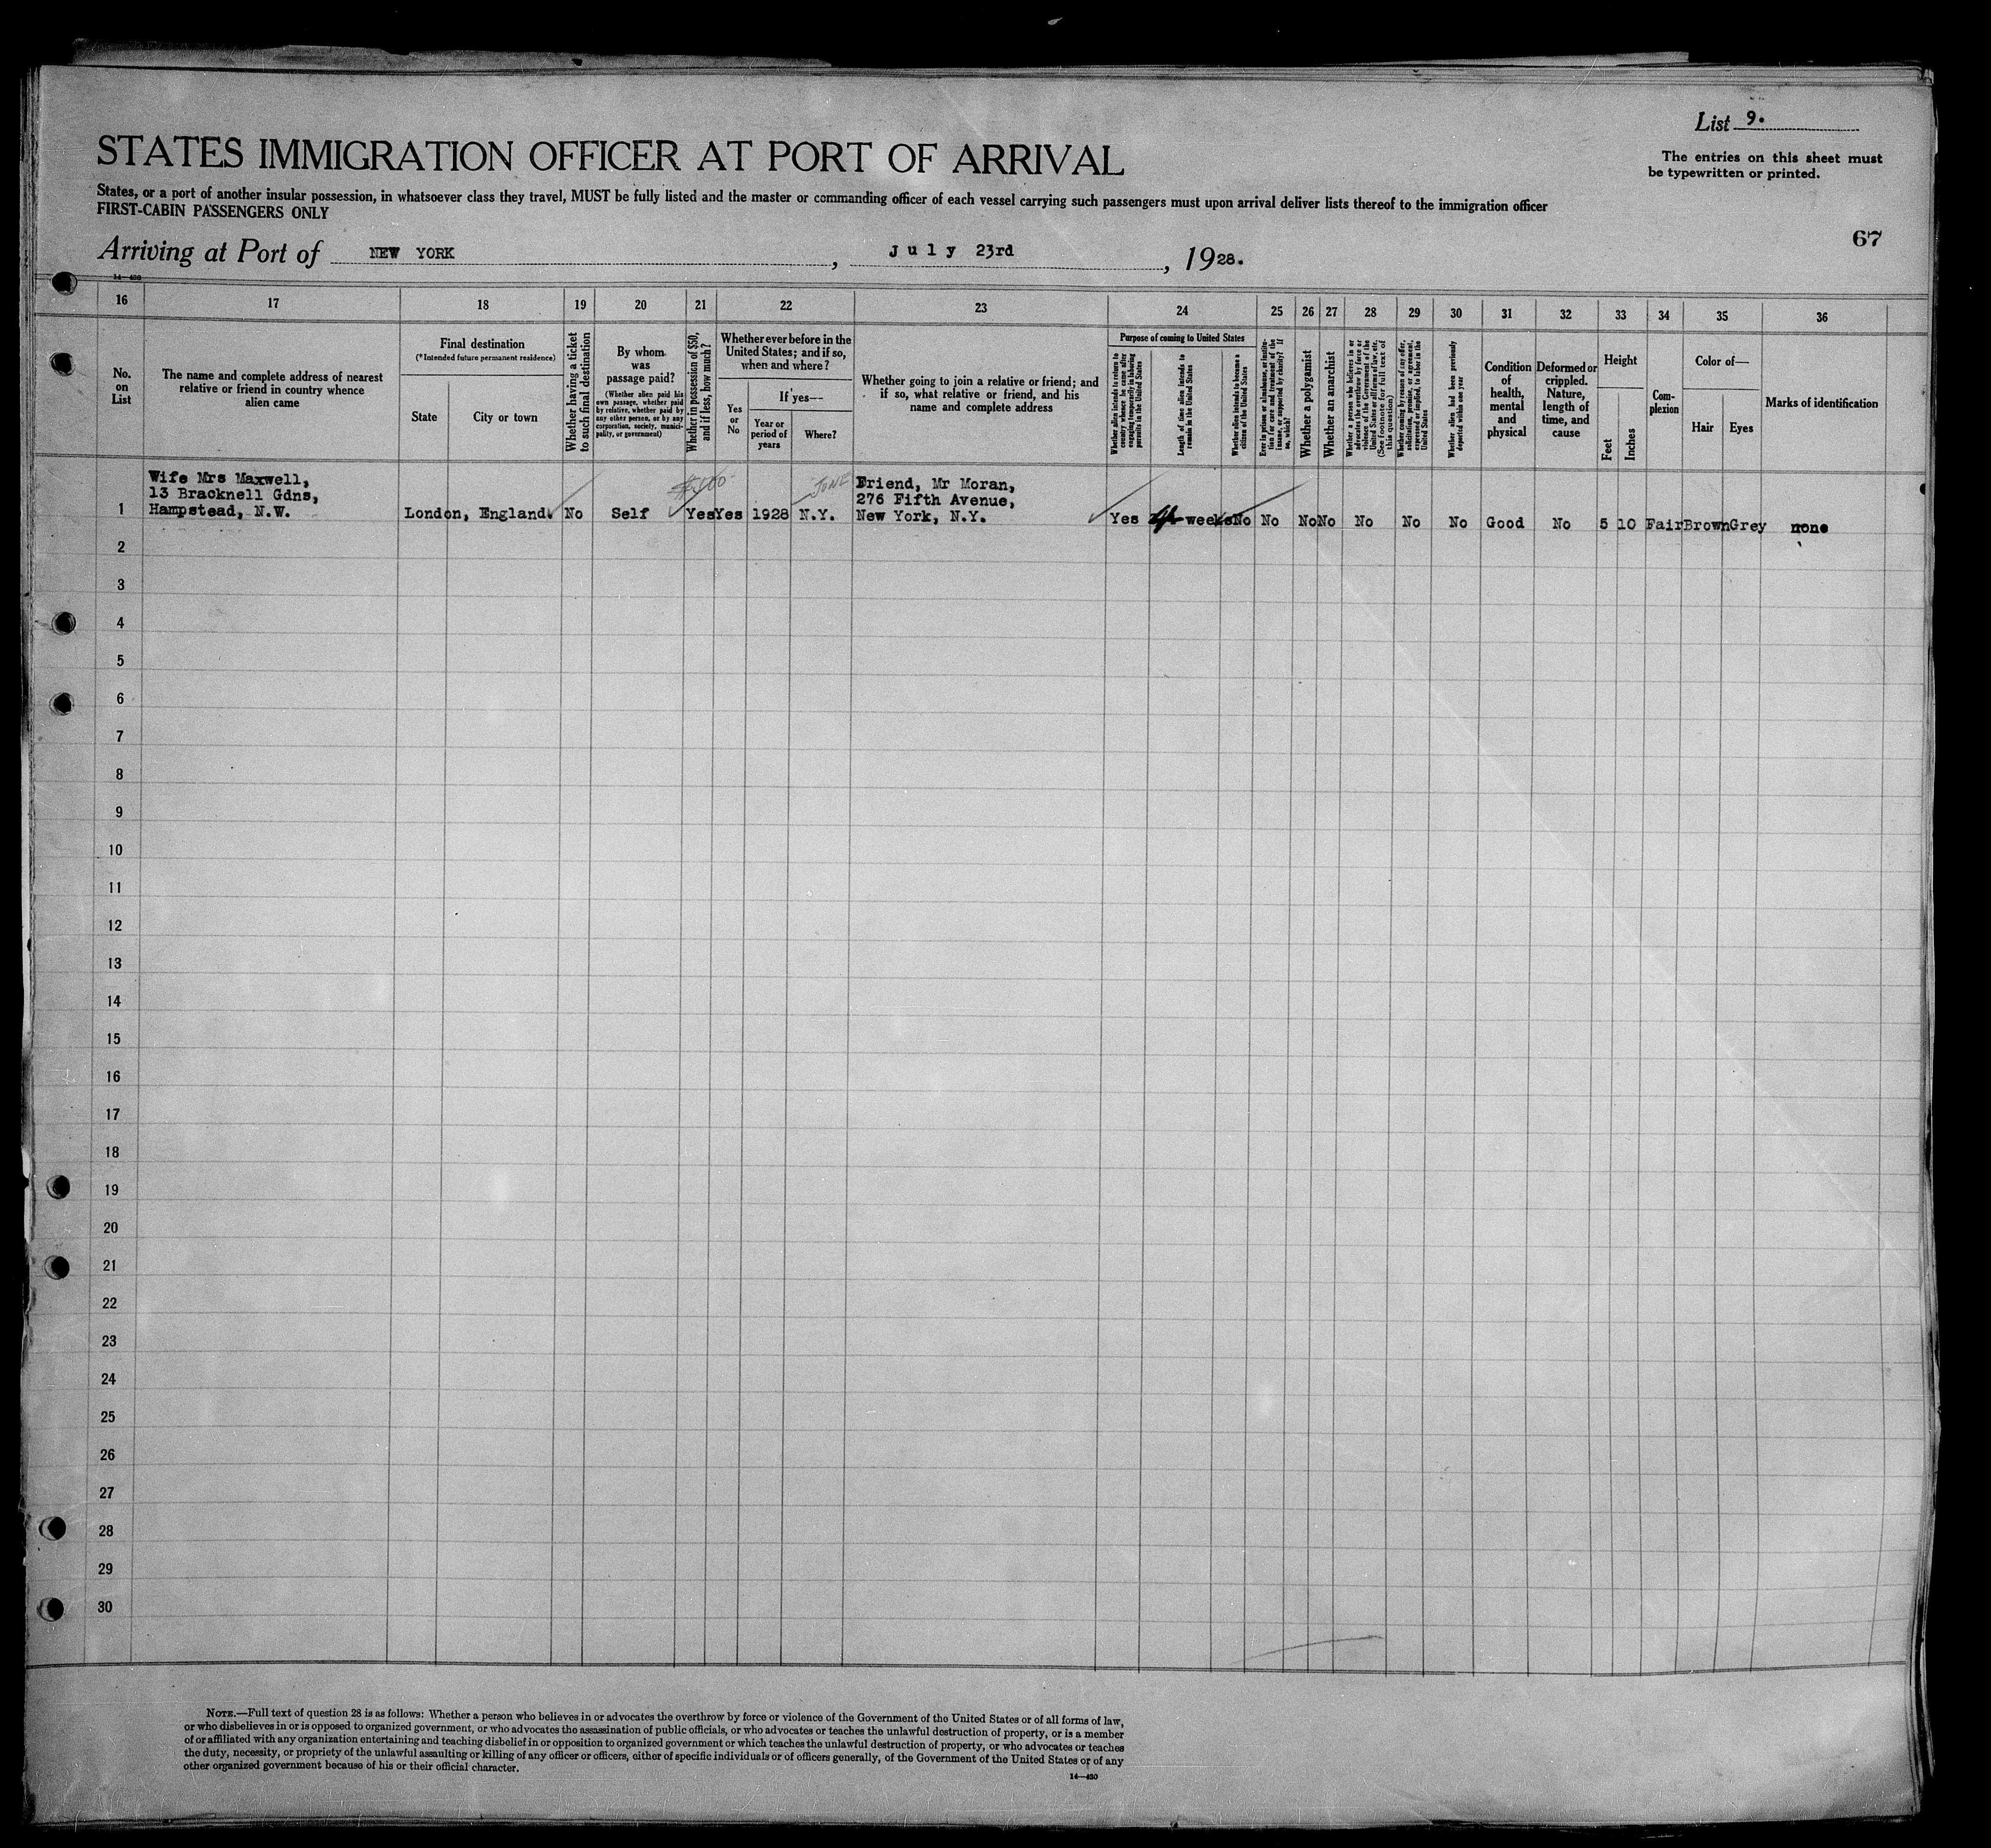 List 9.
The entries on this sheet must
be typewritten or printed.
STATES IMMIGRATION OFFICER AT PORT OF ARRIVAL
States, or a port of another insular possession, in whatsoever class they travel, MUST be fully listed and the master or commanding officer of each vessel carrying such passengers must upon arrival deliver lists thereof to the immigration officer
FIRST-CABIN PASSENGERS ONLY
67
Arriving at Port of NEW YORK, July 23rd, 1928.
14—430
16 17 18 19 20 21 22 23 24 25 26 27 28 29 30 31 32 33 34 35 36
No.
on
List
The name and complete address of nearest
relative or friend in country whence
alien came
Final destination
(*Intended future permanent residence)
State
City or town
Whether having a ticket
to such final destination
By whom
was
passage paid?
(Whether alien paid his
own passage, whether paid
by relative, whether paid by
any other person, or by any
corporation, society, munici-
pality, or government)
Whether in possession of $50,
and if less, how much?
Whether ever before in the
United States; and if so,
when and where?
Yes
or
No
If yes—
Year or
period of
years
Where?
Whether going to join a relative or friend; and
if so, what relative or friend, and his
name and complete address
Purpose of coming to United States
Whether alien intends to return to
country whence he came after
engaging temporarily in laboring
pursuits in the United States
Length of time alien intends to
remain in the United States
Whether alien intends to become a
citizen of the United States
Ever in prison or almshouse, or institu-
tion for care and treatment of the
insane, or supported by charity? If
so, which?
Whether a polygamist
Whether an anarchist
Whether a person who believes in or
advocates the overthrow by force or
violence of the Government of the
United States or all forms of law, etc.
(See footnote for full text of
this question)
Whether coming by reason of any offer,
solicitation, promise, or agreement,
expressed or implied, to labor in the
United States
Whether alien had been previously
deported within one year
Condition
of
health,
mental
and
physical
Deformed or
crippled.
Nature,
length of
time, and
cause
Height
Feet
Inches
Com-
plexion
Color of—
Hair
Eyes
Marks of identification
Wife Mrs Maxwell,
13 Bracknell Gdns,
Hampstead, N.W.
$500
JUNE
Friend, Mr Moran,
276 Fifth Avenue,
New York, N.Y.
1 London, England. No Self Yes Yes 1928 N.Y. Yes weeks No No No No No No No Good No 5 10 Fair Brown Grey none
2
3
4
5
6
7
8
9
10
11
12
13
14
15
16
17
18
19
20
21
22
23
24
25
26
27
28
29
30
NOTE.—Full text of question 28 is as follows: Whether a person who believes in or advocates the overthrow by force or violence of the Government of the United States or of all forms of law,
or who disbelieves in or is opposed to organized government, or who advocates the assassination of public officials, or who advocates or teaches the unlawful destruction of property, or is a member
of or affiliated with any organization entertaining and teaching disbelief in or opposition to organized government or which teaches the unlawful destruction of property, or who advocates or teaches
the duty, necessity, or propriety of the unlawful assaulting or killing of any officer or officers, either of specific individuals or of officers generally, of the Government of the United States or of any
other organized government because of his or their official character.
14—430